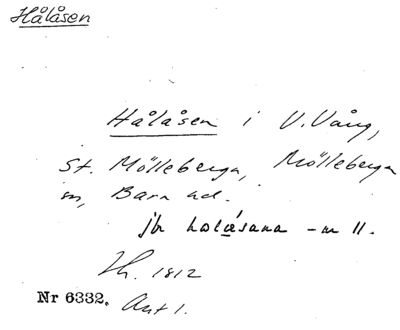 Hålåsen
Hålåsen i V. Vång,
St. Mölleberga, Mölleberga
m, Bara hd.
jfr halåsana – m 11.
Lh. 1812
Nr 6332. Ant 1.